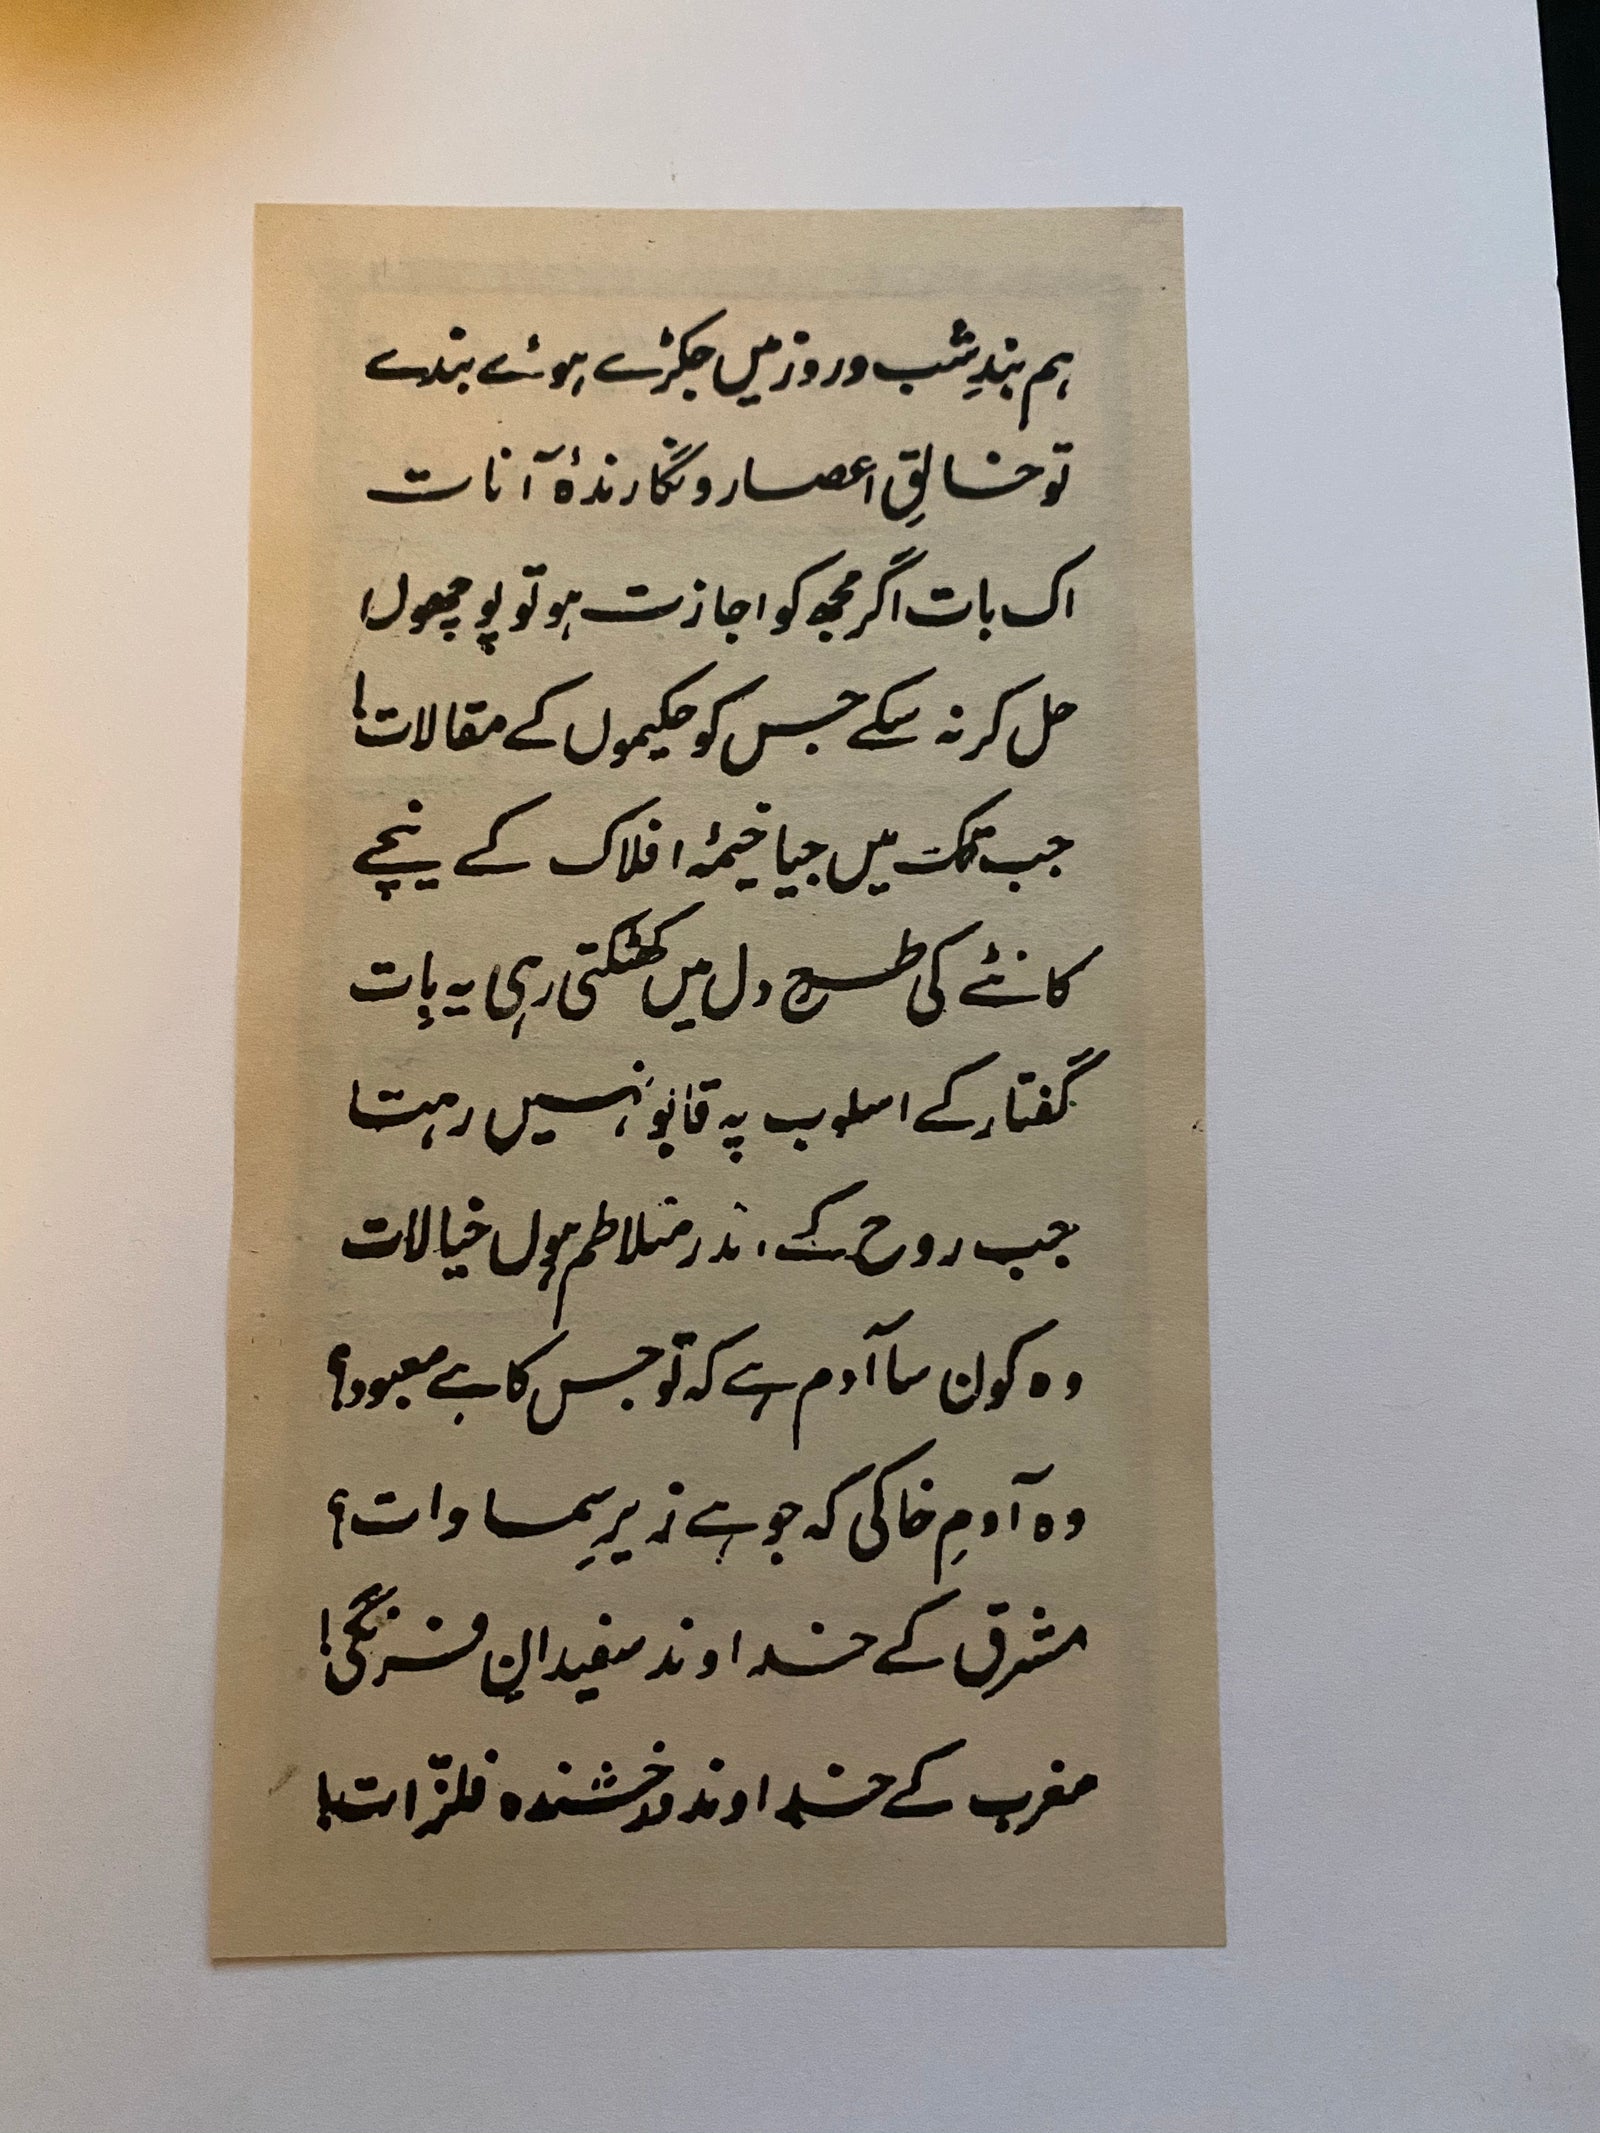 ہم بندِ شب و روز میں جکڑے ہوئے بندے
تو خالقِ اعصار و نگارندۂ آنات
اک بات اگر مجھ کو اجازت ہو تو پوچھوں!
حل کر نہ سکے جس کو حکیموں کے مقالات!
جب تک میں جیا خیمۂ افلاک کے نیچے
کانٹے کی طرح دل میں کھٹکتی رہی یہ بات
گفتار کے اسلوب پہ قابو نہیں رہتا
جب روح کے اندر متلاطم ہوں خیالات
وہ کون سا آدم ہے کہ تو جس کا ہے معبود؟
وہ آدمِ خاکی کہ جو ہے زیرِ سماوات؟
مشرق کے خداوند سفیدانِ فرنگی!
مغرب کے خداوند درخشندہ فلزّات!